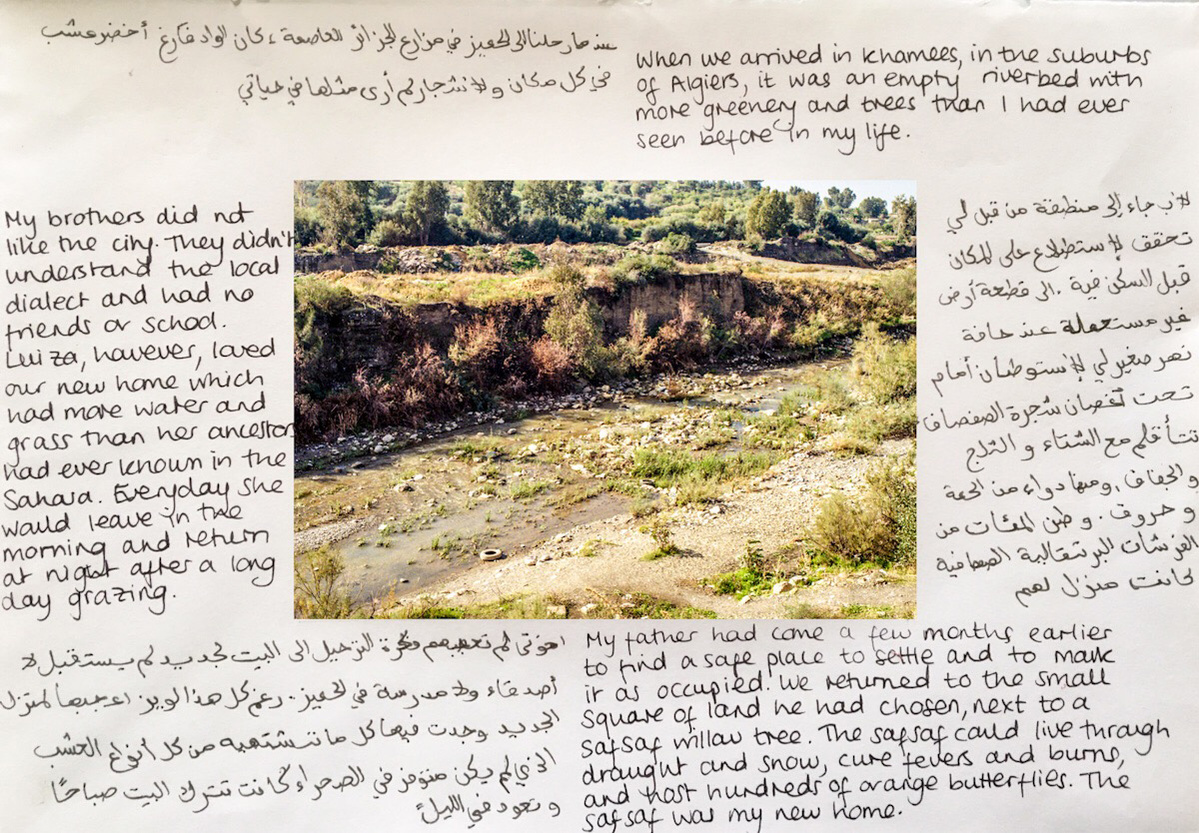 عند ما رحلنا الى الحميز في مزارع الجزائر العاصمة ، كان الواد فارغ أخضر عشب
في كل مكان و لأشجار لم أرى مثلها في حياتي
When we arrived in Khamees, in the suburbs
of Algiers, it was an empty riverbed with
more greenery and trees than I had ever
seen before in my life.
My brothers did not
like the city. They didn't
understand the local
dialect and had no
friends or school.
Luiza, however, loved
our new home which
had more water and
grass than her ancestors
had ever known in the
Sahara. Everyday she
would leave in the
morning and return
at night after a long
day grazing.
لأب جاء إلى منطيقة من قبل لي
تحقق لإستطلاع على المكان
قبل السكن فية . الى قطعة أرض
غير مستعملة عند حافة
نهر صغير لي لإستوطأن أمام
تحت أغصان شجرة الصفصاف
تتأقلم مع الشتاء و الثلج
و الجفاف ، ومنها دواء من الحمة
و حروق . و طن المئات من
الفرشات البرتقالية
كانت منزل لهم
اخوتي لم تعجبهم فكرة الترحيل الى البيت لجديد لم يستقبل لا
أصدقاء ولا مدرسة في الحميز . رغم كل هذا الويز اعجبها لمنزل
الجديد وجدت فيها كل ما تشتهيه من كل أنواع العشب
الذي لم يكن متوفر في الصحراء كانت تترك البيت صباحًا
و تعود في الليل
My father had come a few months earlier
to find a safe place to settle and to mark
it as occupied. We returned to the small
square of land he had chosen, next to a
safsaf willow tree. The safsaf could live through
draught and snow, cure fevers and burns,
and host hundreds of orange butterflies. The
safsaf was my new home.